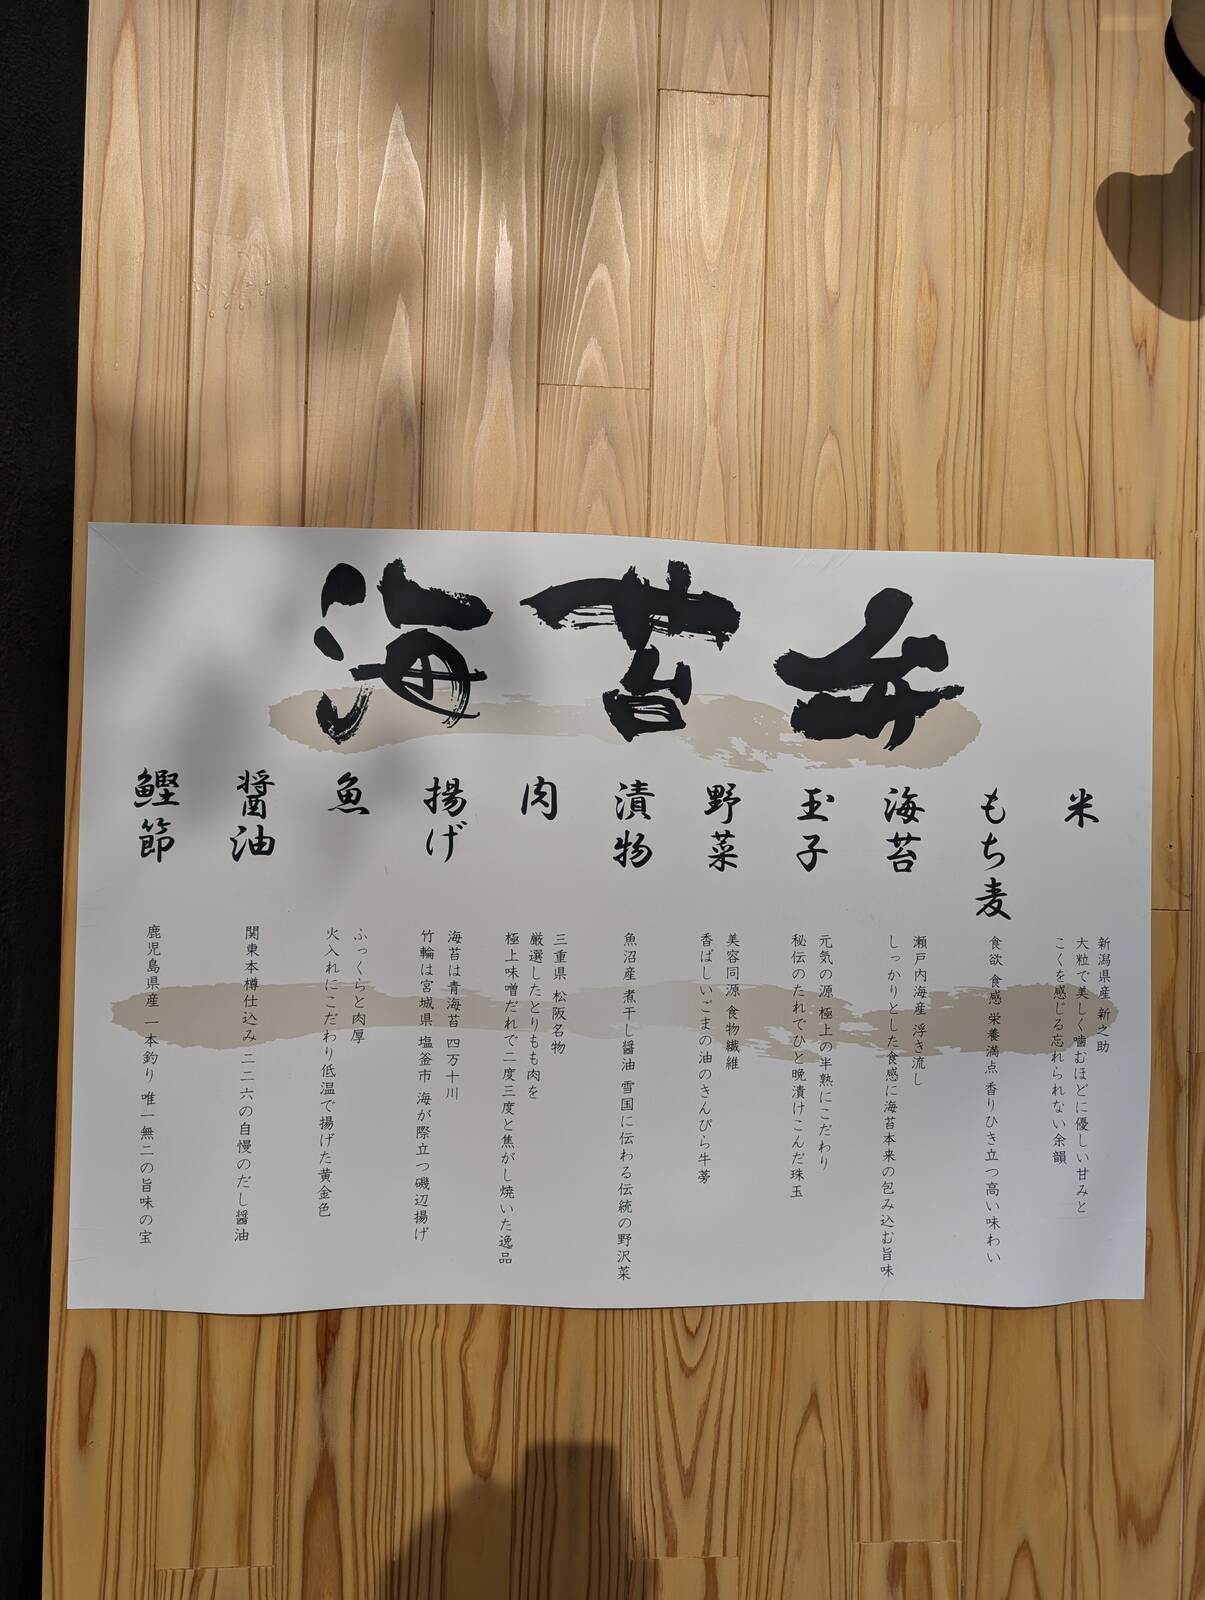 海苔弁
米
新潟県産 新之助
大粒で美しく噛むほどに優しい甘みと
こくを感じる忘れられない余韻
もち麦
食欲 食感 栄養満点 香りひき立つ高い味わい
海苔
瀬戸内海産 浮き流し
しっかりとした食感に海苔本来の包み込む旨味
玉子
元気の源 極上の半熟にこだわり
秘伝のたれでひと晩漬けこんだ珠玉
野菜
美容同源 食物繊維
香ばしいごまの油のきんぴら牛蒡
漬物
魚沼産 煮干し醤油 雪国に伝わる伝統の野沢菜
肉
三重県 松阪名物
厳選したとりもも肉を
極上味噌だれで二度三度と焦がし焼いた逸品
揚げ
海苔は青海苔 四万十川
竹輪は宮城県 塩釜市 海が際立つ磯辺揚げ
魚
ふっくらと肉厚
火入れにこだわり低温で揚げた黄金色
醤油
関東本樽仕込み 二二六の自慢のだし醤油
鰹節
鹿児島県産 一本釣り 唯一無二の旨味の宝